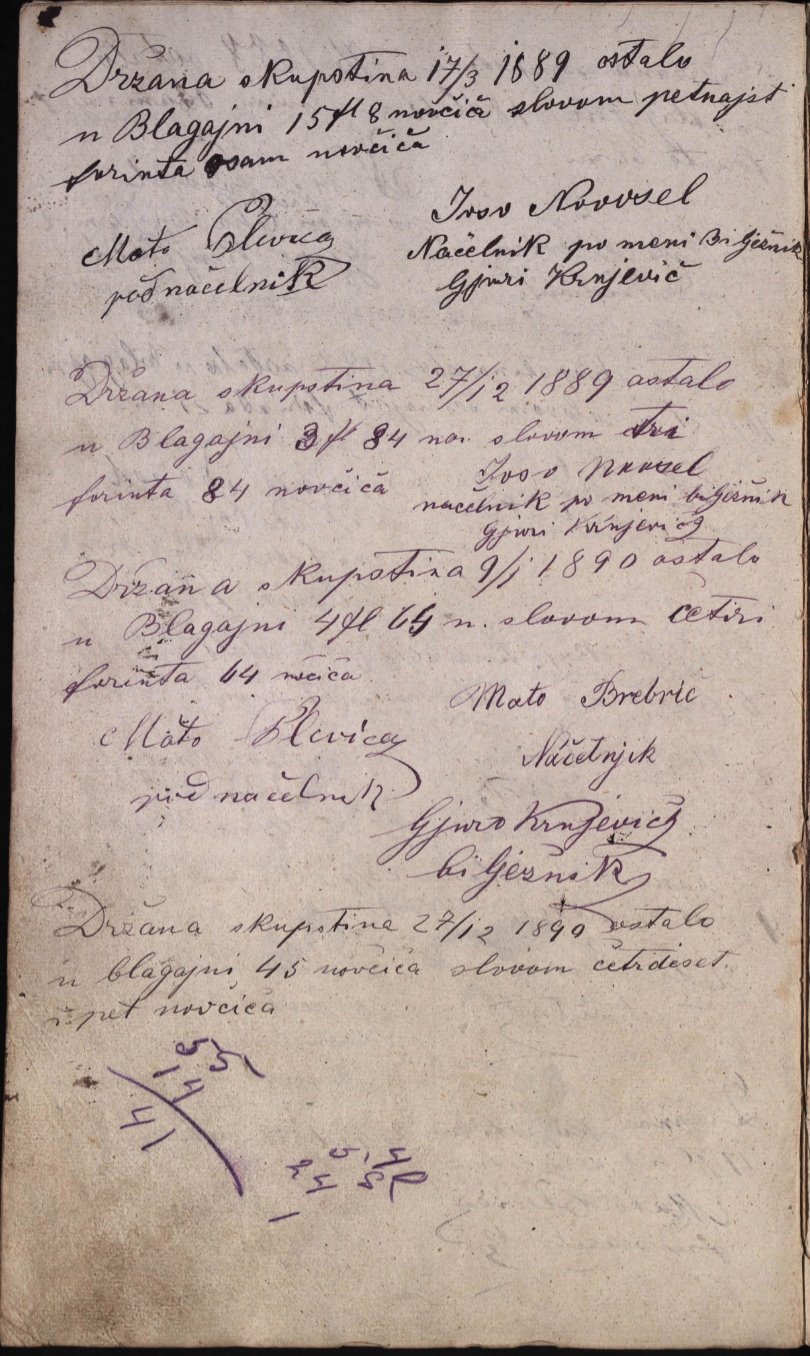 Držana skupština 17/3 1889 ostalo
u Blagajni 15 fl 8 novčića slovom petnajst
forinta osam novčića
Joso Novosel
Mato Plevica
Načelnik po meni Biljžnik
podnačelnik
Gjuri Krnjević
Držana skupština 27/12 1889 ostalo
u Blagajni 3 fl 84 no. slovom tri
forinta 84 novčića
Joso Novosel
načelnik po meni biljžnik
Gjuri Krnjević
Držana skupština 9/1 1890 ostalo
u Blagajni 4 fl 64 n. slovom četiri
forinta 64 nočića
Mato Brebrić
Mato Plevica
Načelnjik
podnačelnik
Gjuro Krnjević
biljžnik
Držana skupština 27/12 1890 ostalo
u blagajni 45 novčića slovom četrdeset
i pet novčića
55
14
41